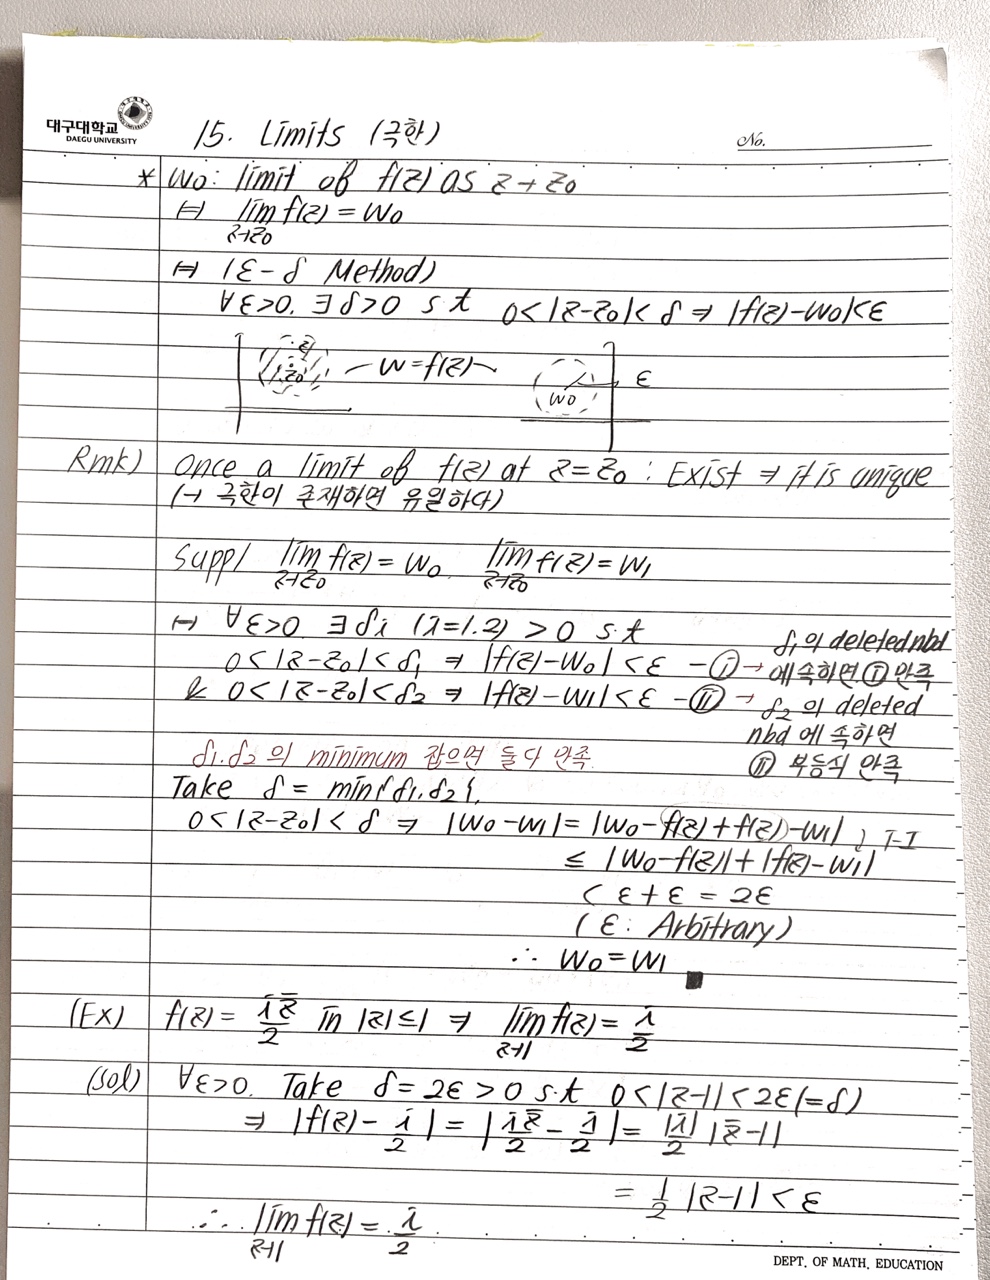 대구대학교
DAEGU UNIVERSITY
15. Limits (극한)
No.
* w₀: limit of f(z) as z→z₀
⇔ lim_{z→z₀} f(z) = w₀
⇔ (ε-δ Method)
∀ε>0, ∃δ>0 s.t 0<|z-z₀|<δ ⇒ |f(z)-w₀|<ε
z z₀ w=f(z) w₀ ε
Rmk) Once a limit of f(z) at z=z₀ : Exist ⇒ it is unique
(→ 극한이 존재하면 유일하다)
Supp/ lim_{z→z₀} f(z) = w₀, lim_{z→z₀} f(z) = w₁
↦ ∀ε>0 ∃δi (i=1.2) > 0 s.t
0<|z-z₀|<δ₁ ⇒ |f(z)-w₀|<ε -ⓘ → δ₁의 deleted nbd 에 속하면 ⓘ 만족
& 0<|z-z₀|<δ₂ ⇒ |f(z)-w₁|<ε -ⓘⓘ → δ₂의 deleted
nbd 에 속하면
ⓘⓘ 부등식 만족
δ₁.δ₂의 minimum 잡으면 둘다 만족.
Take δ = min{δ₁.δ₂},
0<|z-z₀|<δ ⇒ |w₀-w₁| = |w₀-f(z)+f(z)-w₁| ) T-I
≤ |w₀-f(z)|+|f(z)-w₁|
< ε+ε = 2ε
(ε: Arbitrary)
∴ w₀=w₁ ■
(Ex) f(z) = iz̄/2 in |z|≤1 ⇒ lim_{z→1} f(z) = i/2
(Sol) ∀ε>0. Take δ=2ε>0 s.t 0<|z-1|<2ε(=δ)
⇒ |f(z) - i/2| = |iz̄/2 - i/2| = |i|/2 |z̄-1|
= 1/2 |z-1| < ε
∴ lim_{z→1} f(z) = i/2
DEPT. OF MATH. EDUCATION